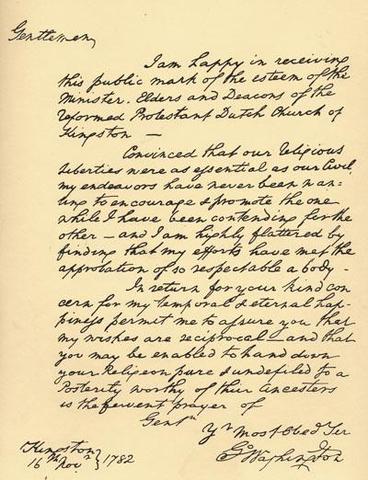 Gentlemen,
I am happy in receiving
this public mark of the esteem of the
Minister, Elders and Deacons of the
Reformed Protestant Dutch Church of
Kingston —
Convinced that our Religious
Liberties were as essential as our Civil,
my endeavors have never been wan-
ting to encourage & promote the one
while I have been contending for the
other — and I am highly flattered by
finding that my efforts have met the
approbation of so respectable a body -
In return for your kind con
cern for my temporal & eternal hap-
piness permit me to assure you that
my wishes are reciprocal — and that
you may be enabled to hand down
your Religion pure & undefiled to a
Posterity worthy of their Ancesters
is the fervent prayer of
Gentn
Yr Most Obed Ser
Go Washington
Kingston
16th Novr } 1782